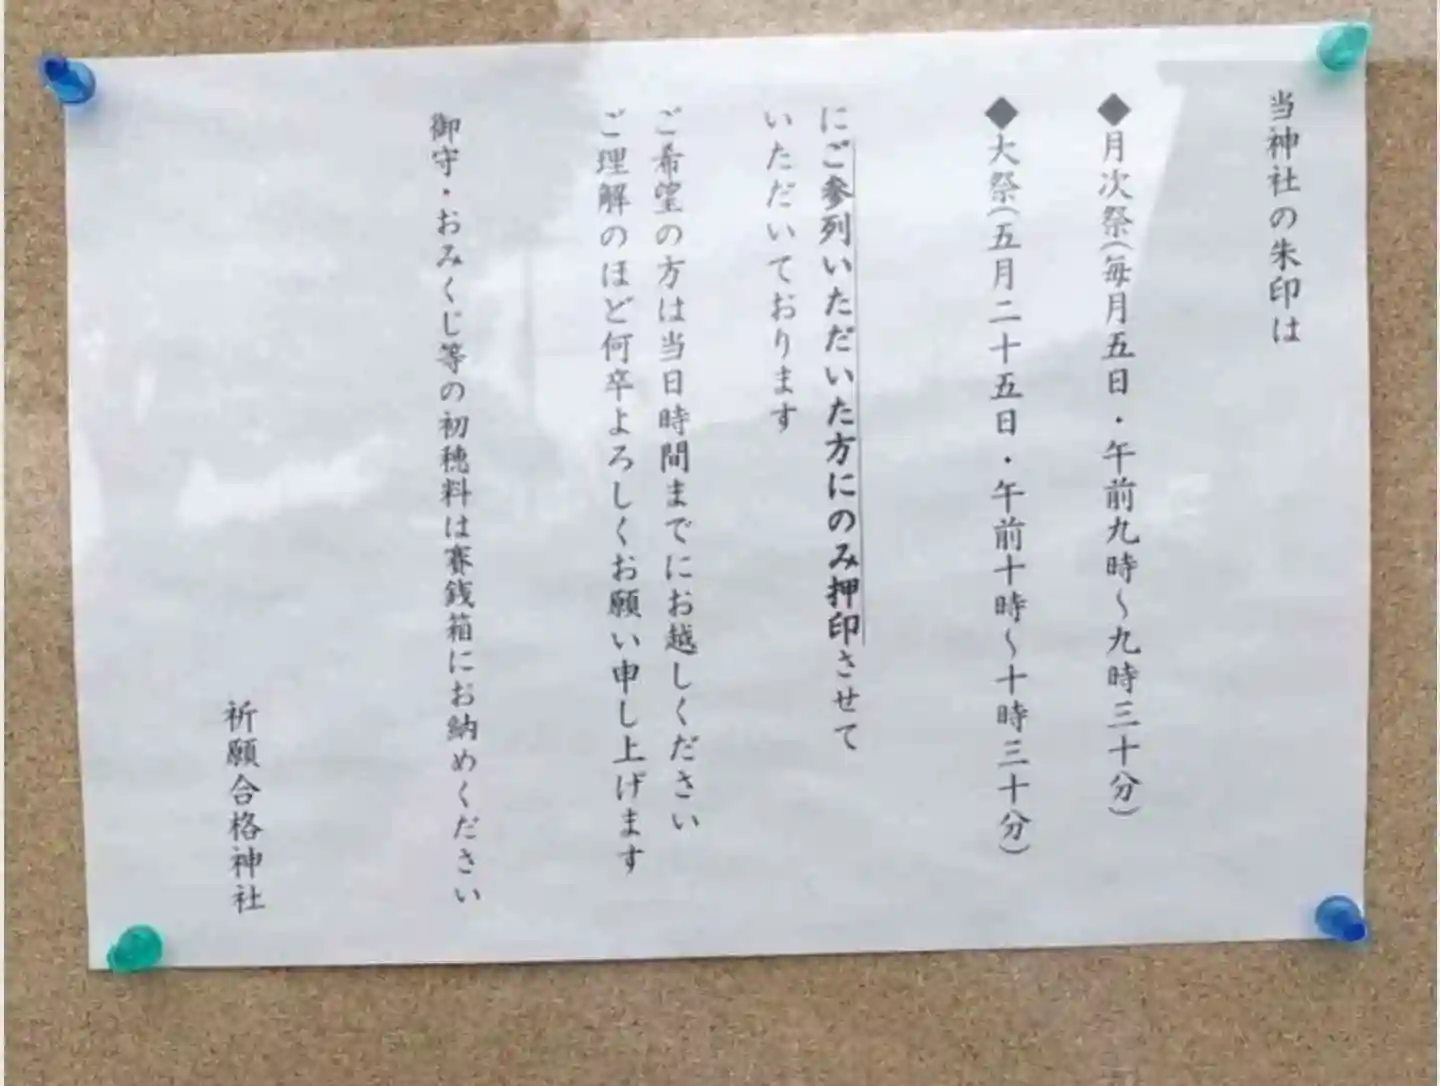 当神社の朱印は
◆月次祭(毎月五日・午前九時~九時三十分)
◆大祭(五月二十五日・午前十時~十時三十分)
にご参列いただいた方にのみ押印させて
いただいております
ご希望の方は当日時間までにお越しください
ご理解のほど何卒よろしくお願い申し上げます
御守・おみくじ等の初穂料は賽銭箱にお納めください
祈願合格神社